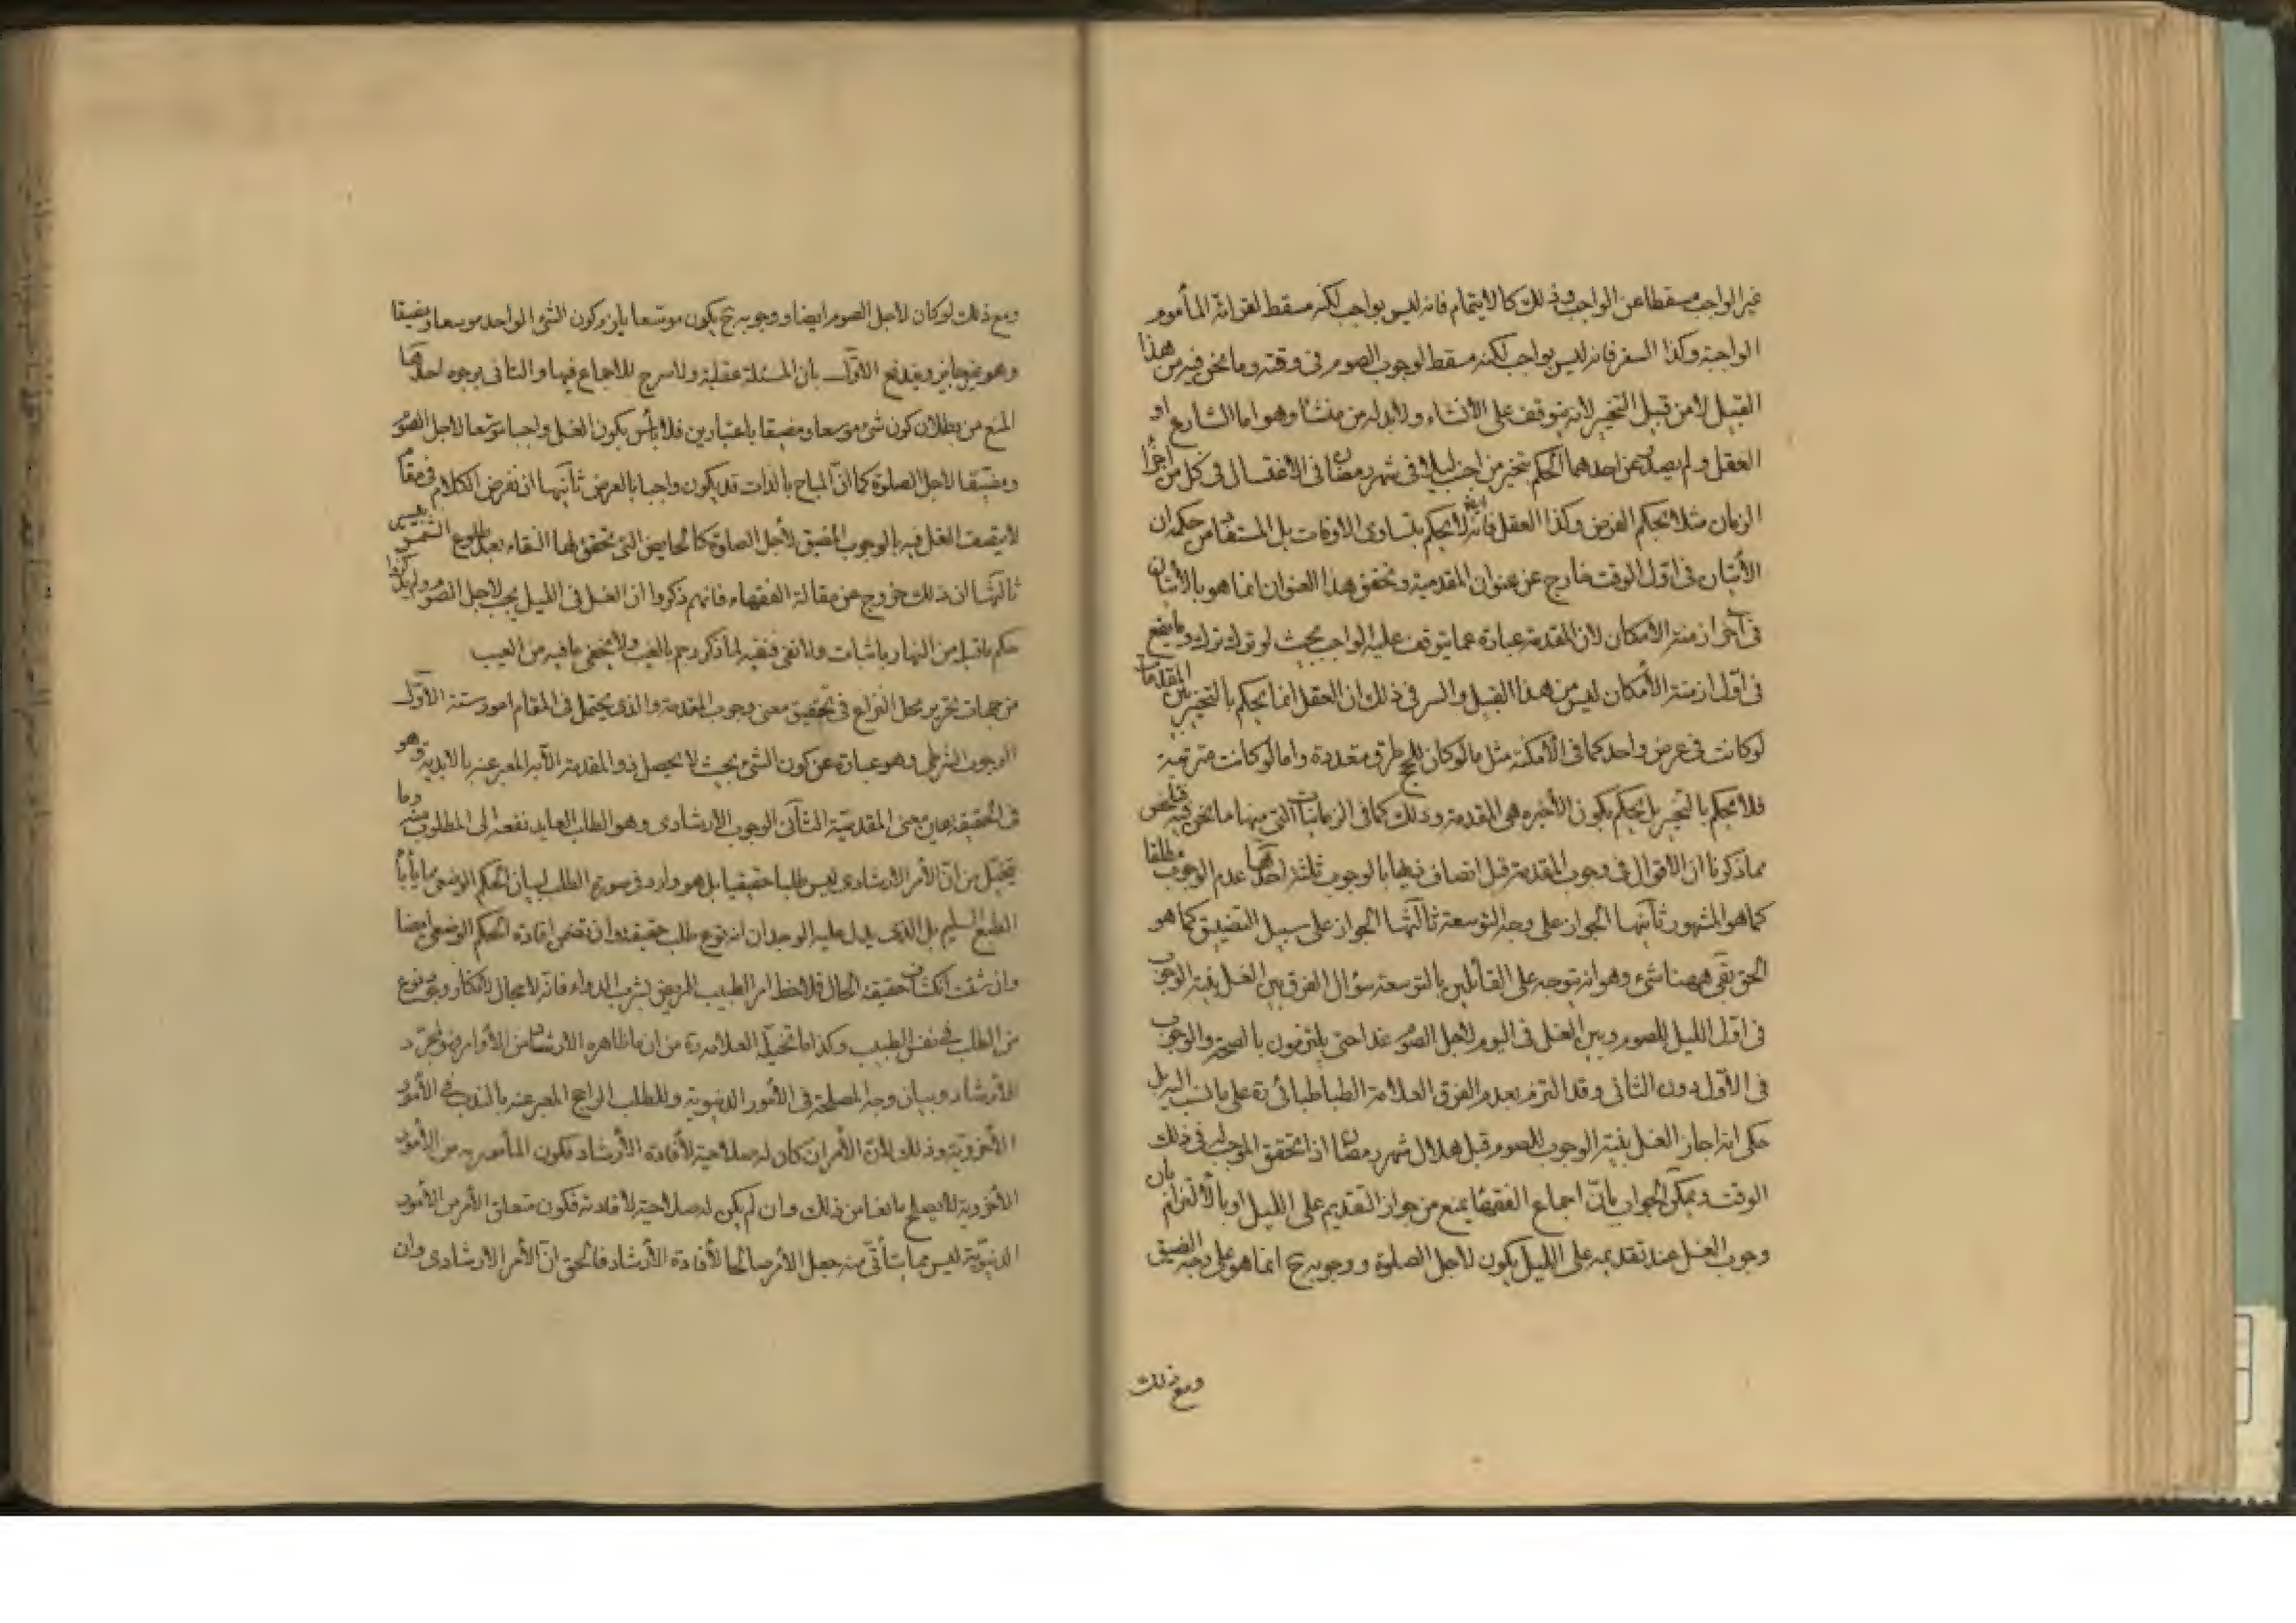 غير الواجب مسقطا عن الواجب وذلك كالايتمام فانه ليس بواجب لكنه مسقط لقرائة المأموم
الواجبة وكذا السفر فانه ليس بواجب لكنه مسقط لوجوب الصوم فى وقته وما نحن فيه من هذا
القبيل لا من قبيل التخيير لانه يتوقف على الأنشاء ولا بد له من منشأ وهو اما الشارع او
العقل ولم يصدر من احدهما الحكم بتخيير من اجنب ليلا فى شهر رمضان فى الاغتسال فى كل من اجزا
الزمان مثلا بحكم الفرض وكذا العقل فانه ايضا لا يحكم بتساوى الاوقات بل المستفاد من حكمه ان
الأتيان فى اول الوقت خارج عن عنوان المقدمية وتحقق هذا العنوان انما هو بالأتيان
فى آخر ازمنة الأمكان لأن المقدمة عبارة عما يتوقف عليه الواجب بحيث لو ترك ترك وما يقع
فى اول ازمنة الأمكان ليس من هذا القبيل والسر فى ذلك ان العقل انما يحكم بالتخيير بين المقدمات
لو كانت فى عرض واحد كما فى الأمكنة مثل ما لو كان للحج طرق متعددة واما لو كانت مترتبة
فلا يحكم بالتخيير بل يحكم بكون الأخيره هى المقدمة وذلك كما فى الزمانيات التى منها ما نحن فيه فتلخص
مما ذكرنا ان الأقوال فى وجوب المقدمة قبل اتصاف ذيها بالوجوب ثلثة احدها عدم الوجوب مطلقا
كما هو المشهور ثانيها الجواز على وجه التوسعة ثالثها الجواز على سبيل التضييق كما هو
الحق بقى ههنا شىء وهو انه يتوجه على القائلين بالتوسعة سؤال الفرق بين الغسل بنية الوجوب
فى اول الليل للصوم وبين الغسل فى اليوم لاجل الصوم غدا حتى يلتزمون بالصحة والوجوب
فى الأول دون الثانى وقد التزم بعدم الفرق العلامة الطباطبائى ره على ما نسب اليه بل
حكى انه اجاز الغسل بنية الوجوب للصوم قبل هلال شهر رمضان اذا تحقق الموجب فى ذلك
الوقت ويمكن الجواب بأن اجماع الفقهاء يمنع من جواز التقديم على الليل او بالألتزام بان
وجوب الغسل عند تقديمه على الليل يكون لاجل الصلوة ووجوبه ح انما هو على وجه الضيق
ومع ذلك
ومع ذلك لو كان لاجل الصوم ايضا ووجوبه ح يكون موسعا يلزم كون الشىء الواحد موسعا ومضيقا
وهو غير جايز ويندفع الأول بأن المسئلة عقلية ولا مسرح للاجماع فيها والثانى بوجوه احدها
المنع من بطلان كون شىء موسعا ومضيقا باعتبارين فلا بأس بكون الغسل واجبا موسعا لاجل الصوم
ومضيقا لاجل الصلوة كما ان المباح بالذات قد يكون واجبا بالعرض ثانيها ان نفرض الكلام فى مقام
لا يتصف الغسل فيه بالوجوب المضيق لأجل الصلوة كالحايض التى تحقق لها النقاء بعد طلوع الشمس
ثالثها ان ذلك خروج عن مقالة الفقهاء فانهم ذكروا ان الغسل فى الليل يجب لاجل الصوم ولم يذكروا
حكم ما قبله من النهار باثبات ولا نفى فنفيه لما ذكر رجم بالغيب ولا يخفى ما فيه من العيب
من جهات تحرير محل النزاع فى تحقيق معنى وجوب المقدمة والذى يحتمل فى المقام امور ستة الأول
الوجوب الشرطى وهو عبارة عن كون الشىء بحيث لا يحصل ذو المقدمة الا به المعبر عنه بالابدية وهو
فى الحقيقة عين معنى المقدمية الثانى الوجوب الأرشادى وهو الطلب العايد نفعه الى المطلوب منه وما
يتخيل من ان الأمر الارشادى ليس طلبا حقيقيا بل هو وارد فى صورة الطلب لبيان الحكم الوضعى مما يأباه
الطبع السليم بل الذى يدل عليه الوجدان انه نوع طلب حقيقة وان تضمن افادة الحكم الوضعى ايضا
وان شئت انكشاف حقيقة الحال فلاحظ امر الطبيب المريض بشرب الدواء فانه لا مجال لانكار وقوع نوع
من الطلب فى نفس الطبيب وكذا ما تخيله العلامة ره من ان ما ظاهره الارشاد من الأوامر فهو لمجرد
الأرشاد وبيان وجه المصلحة فى الأمور الدنيوية وللطلب الراجح المعبر عنه بالندب فى الأمور
الأخروية وذلك لأن الأمر ان كان له صلاحية لأفادة الأرشاد فكون المأمور به من الأمور
الأخروية لا يصلح مانعا من ذلك وان لم يكن له صلاحية لافادته فكون متعلق الأمر من الأمور
الدنيوية ليس مما يتأتى منه جعل الأمر صالحا لأفادة الأرشاد فالحق ان الأمر الارشادى وان